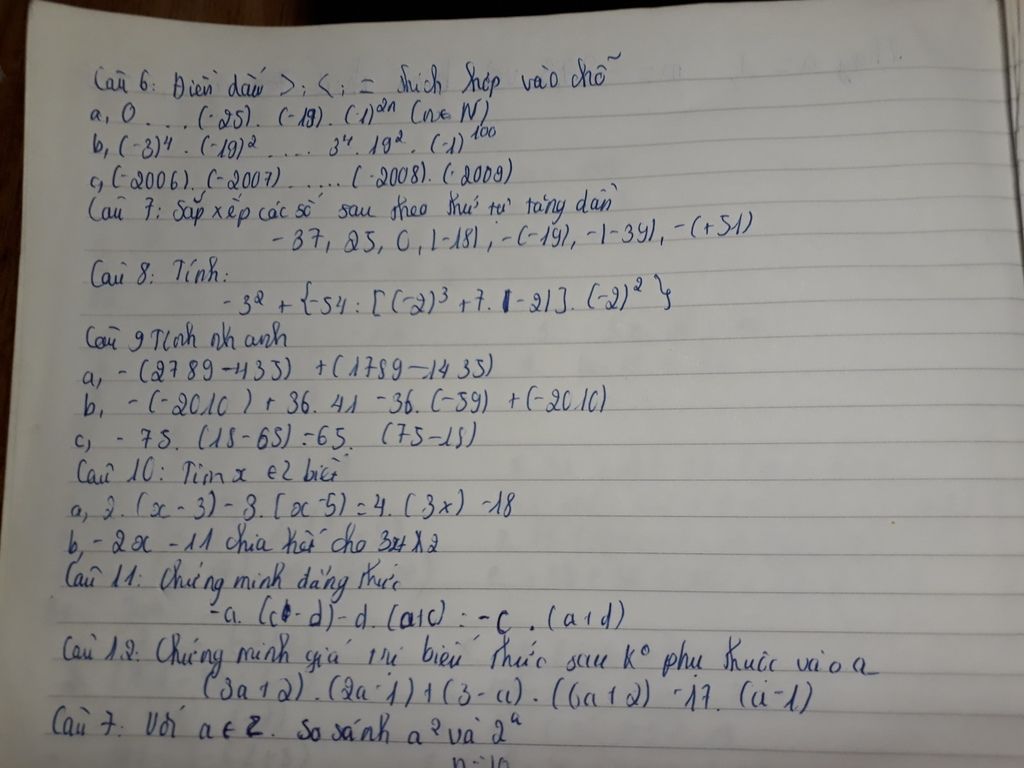 Câu 6: Điền dấu >; <; = thích hợp vào chỗ
a, 0 .... (-25). (-19). (-1)²ⁿ (n∈ N)
b, (-3)⁴ . (-19)² ..... 3⁴. 19². (-1)¹⁰⁰
c, (-2006). (-2007) ..... (-2008). (-2009)
Câu 7: Sắp xếp các số sau theo thứ tự tăng dần
-37, 25, 0, |-18|, -(-19), -|-39|, -(+51)
Câu 8: Tính:
-3² + {-54 : [(-2)³ + 7. |-2|]. (-2)² }
Câu 9 Tính nhanh
a, - (2789 - 435) + (1789 - 1435)
b, - (-2010) + 36. 41 - 36. (-59) + (-2010)
c, - 75. (18 - 65) - 65. (75 - 18)
Câu 10: Tìm x ∈ Z biết
a, 2. (x - 3) - 3. (x - 5) = 4. (3x) - 18
b, -2x - 11 chia hết cho
Câu 11: Chứng minh đẳng thức
-a. (c - d) - d. (a+c) = -c . (a+d)
Câu 12: Chứng minh giá trị biểu thức sau k⁰ phụ thuộc vào a
(3a+2). (2a-1) + (3-a). (6a+2) - 17. (a-1)
Câu 7: Với a ∈ Z. So sánh a² và 2ᵃ